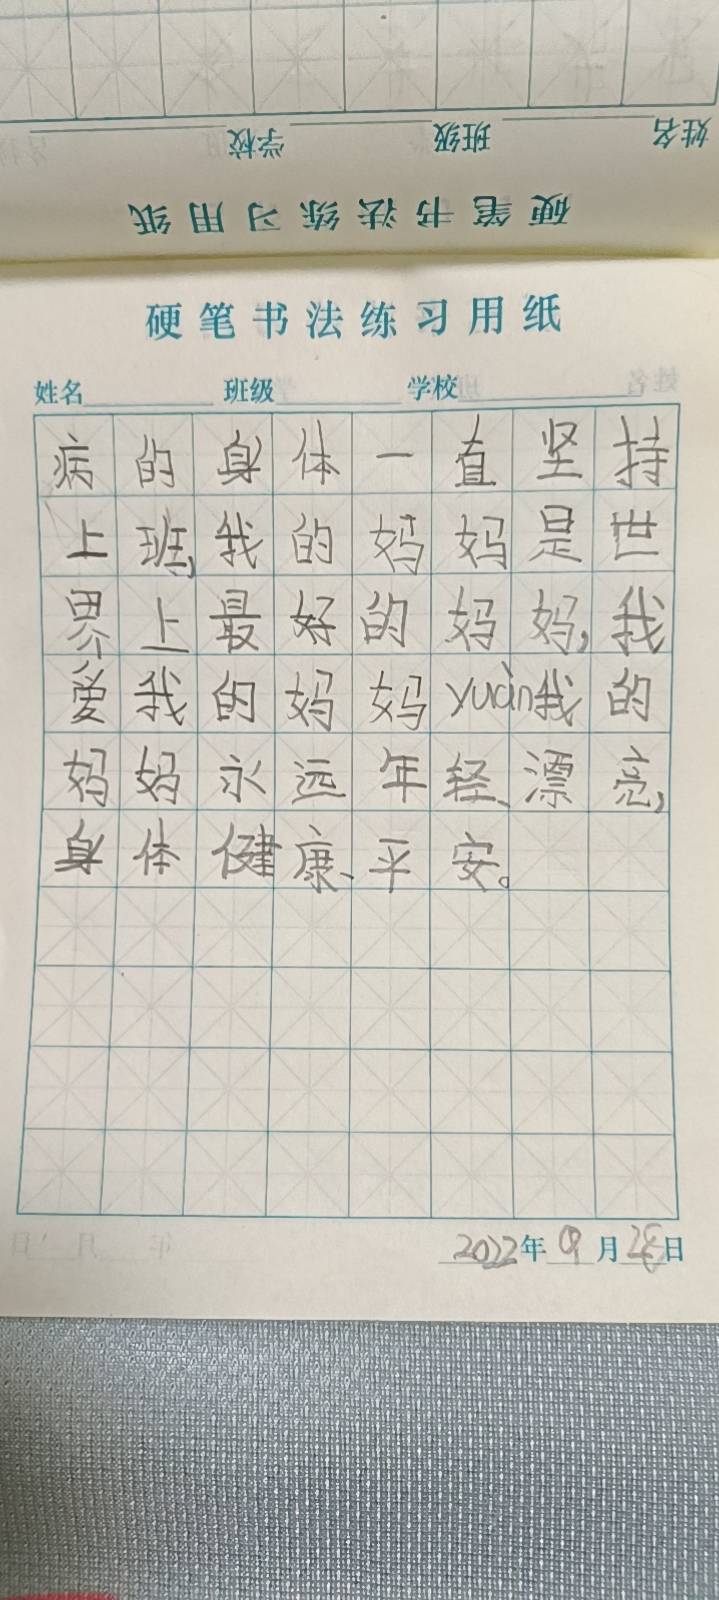 姓名 班级 学校
硬笔书法练习用纸
硬笔书法练习用纸
姓名 班级 学校
病的身体一直坚持
上班,我的妈妈是世
界上最好的妈妈,我
爱我的妈妈yuàn我的
妈妈永远年轻、漂亮,
身体健康、平安。
2022年09月28日